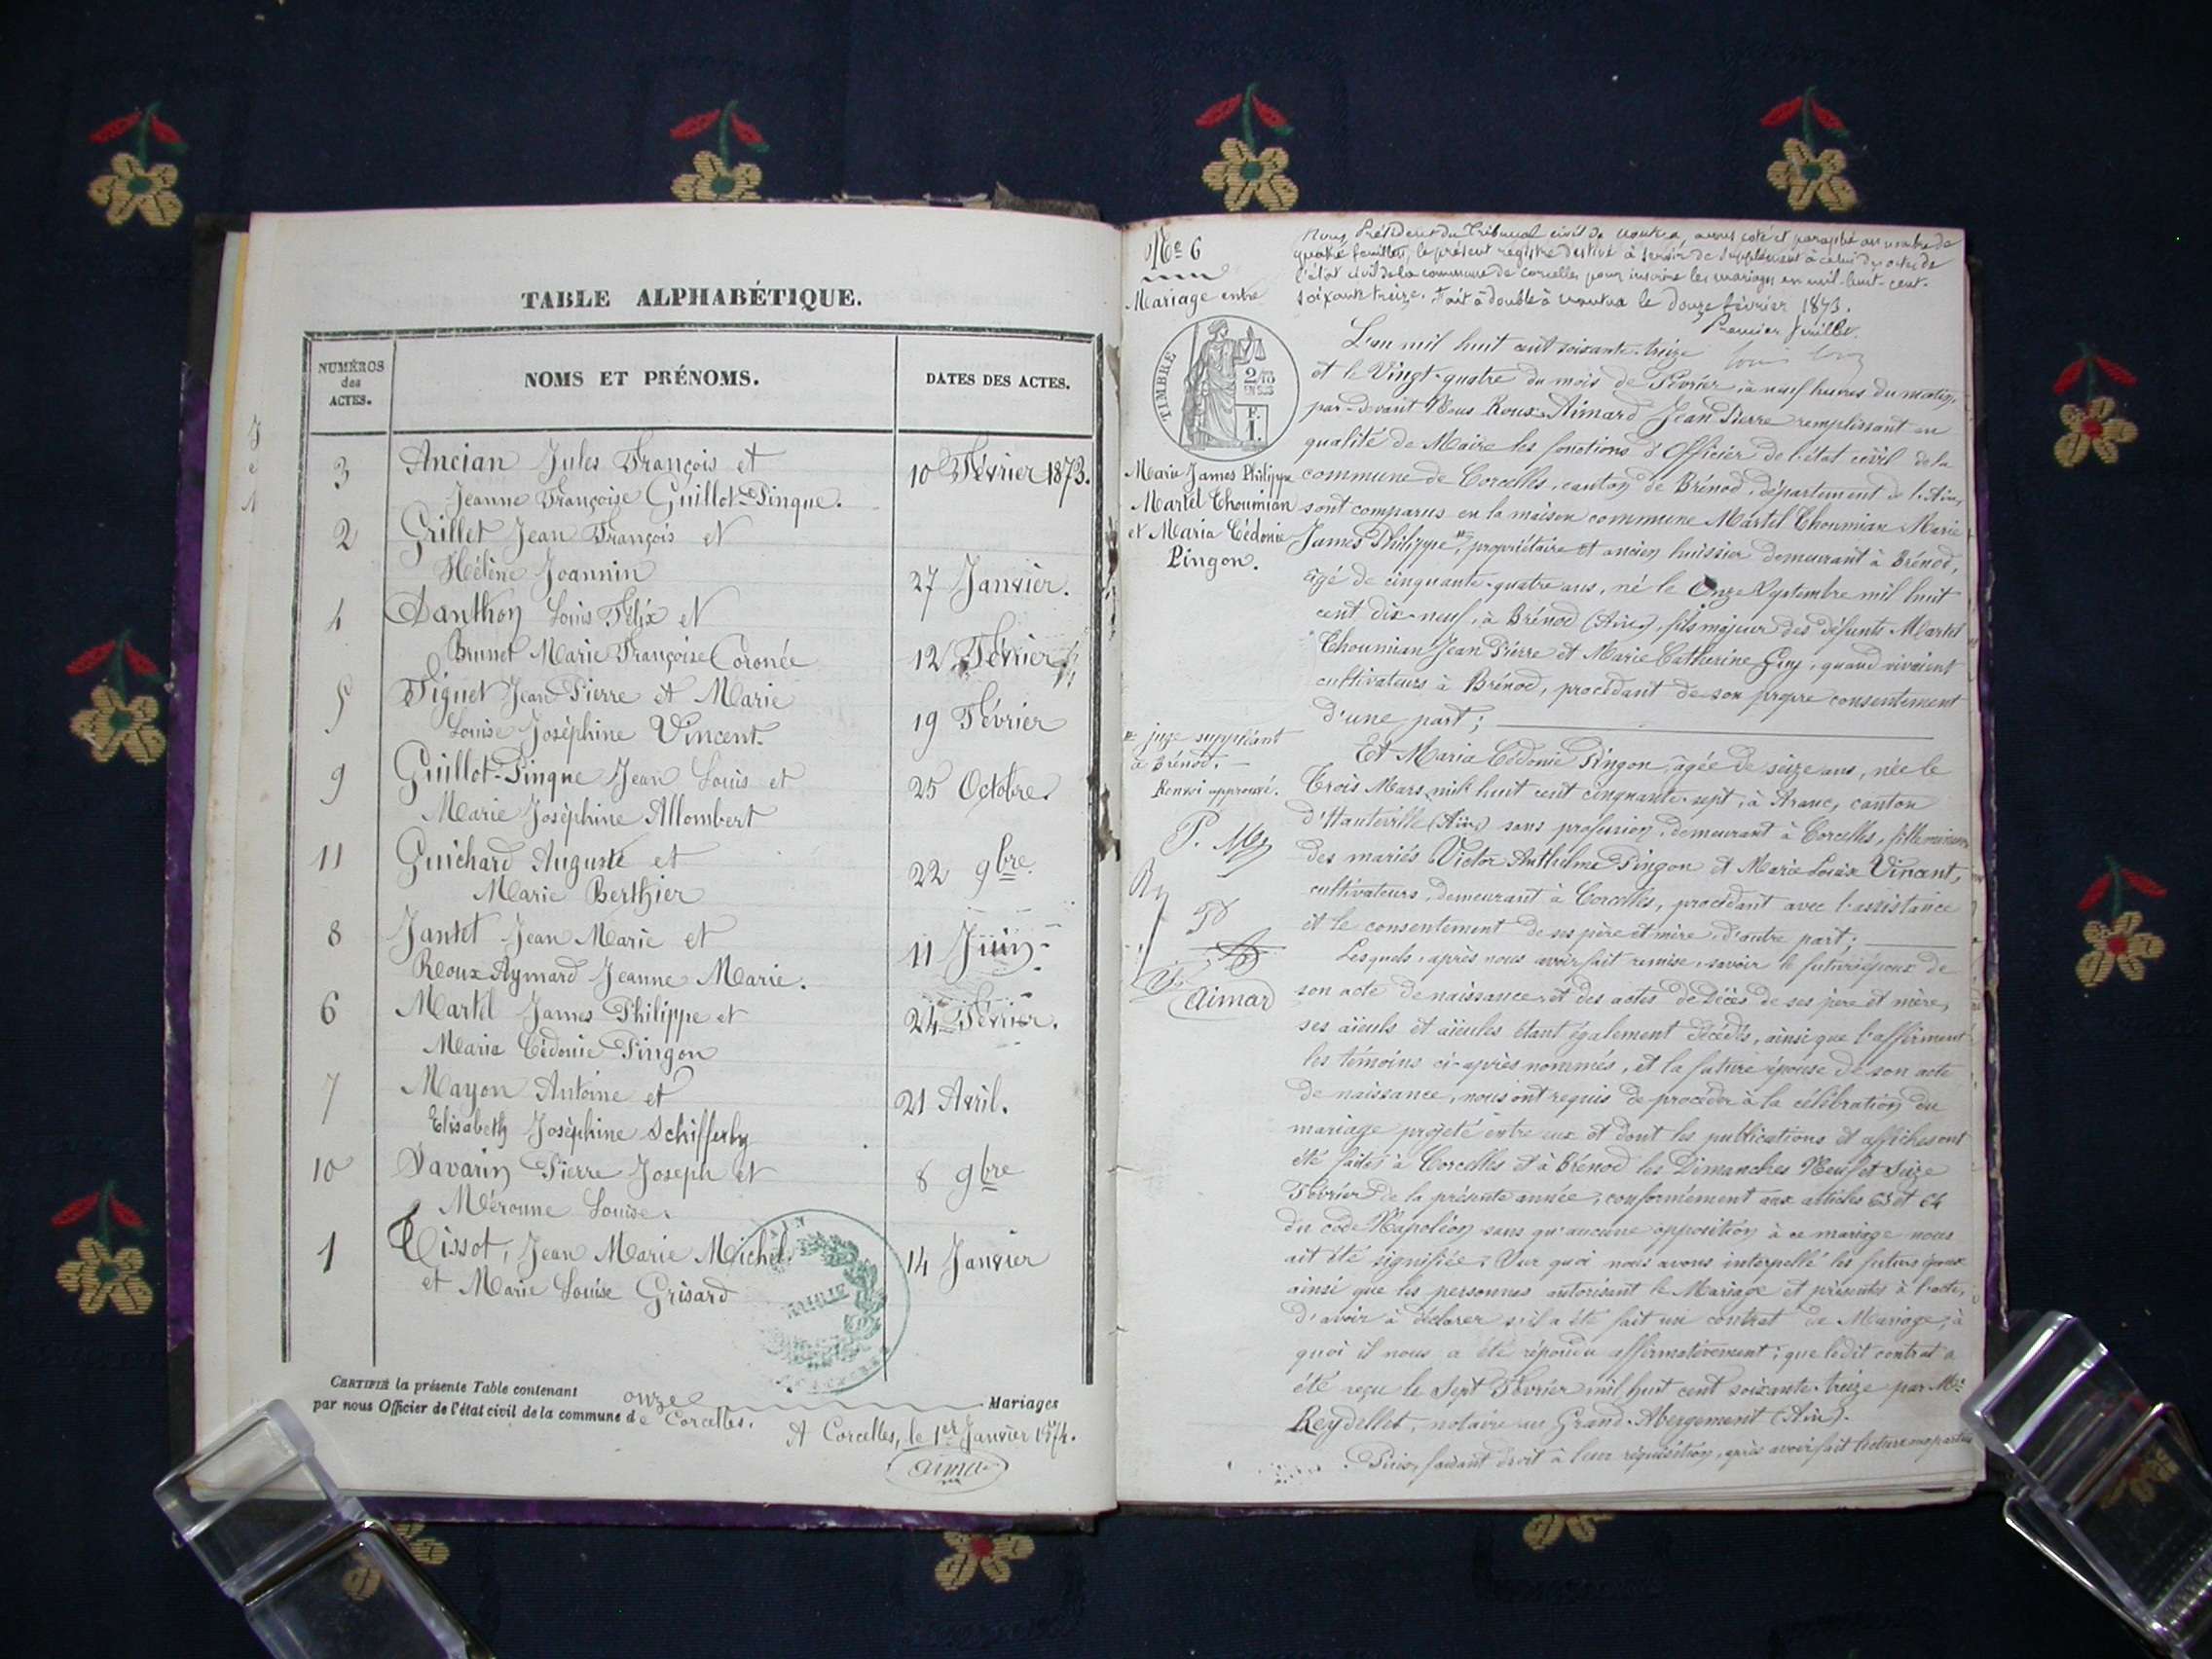 TABLE ALPHABÉTIQUE.
NUMÉROS
des
ACTES.
NOMS ET PRÉNOMS.
DATES DES ACTES.
3 Ancian Jules François et
Jeanne Françoise Guillot-Pinque.
10 Février 1873.
2 Grillet Jean François et
Hélène Joannin
27 Janvier.
4 Danthon Louis Félix et
Brunet Marie Françoise Coronée
12 Février
5 Piguet Jean Pierre et Marie
Louise Joséphine Vincent.
19 Février
9 Guillot-Pinque Jean Louis et
Marie Joséphine Allombert
25 Octobre.
11 Guichard Auguste et
Marie Berthier
22 9bre
8 Jantet Jean Marie et
Roux Aymard Jeanne Marie.
11 Juin
6 Martel James Philippe et
Maria Cédonie Pingon
24 Février.
7 Mayon Antoine et
Elisabeth Joséphine Schifferly
21 Avril.
10 Savarin Pierre Joseph et
Méronne Louise.
8 9bre
1 Tissot, Jean Marie Michel
et Marie Louise Grisard
14 Janvier
AIN
MAIRIE
CERTIFIÉ la présente Table contenant onze Mariages
par nous Officier de l'état civil de la commune de Corcelles.
A Corcelles, le 1er Janvier 1874.
No 6
Mariage entre
TIMBRE
2/10
EN SUS
F.
1.
Marie James Philippe
Martel Thoumian
et Maria Cédonie
Pingon.
juge suppléant
à Brénod.
Renvoi approuvé.
P. M
Aimard
Nous Président du Tribunal civil de Nantua, avons coté et paraphé au nombre de
quatre feuillets, le présent registre destiné à servir de supplément à celui des actes de
l'état civil de la commune de Corcelles pour inscrire les mariages en mil-huit-cent-
soixante treize. Fait à double à Nantua le douze février 1873.
Premier feuillet.
L'an mil huit cent soixante-treize
et le Vingt-quatre du mois de Février, à neuf heures du matin,
par-devant Nous Roux-Aimard Jean Pierre remplissant en
qualité de Maire les fonctions d'Officier de l'état civil de la
commune de Corcelles, canton de Brénod, département de l'Ain,
sont comparus en la maison commune Martel Thoumian Marie
James Philippe, propriétaire et ancien huissier demeurant à Brénod,
âgé de cinquante-quatre ans, né le Onze Septembre mil huit
cent dix-neuf, à Brénod (Ain), fils majeur des défunts Martel
Thoumian Jean Pierre et Marie Catherine Guy, quand vivaient
cultivateurs à Brénod, procédant de son propre consentement
d'une part;
Et Maria Cédonie Pingon, âgée de seize ans, née le
Trois Mars mil huit cent cinquante-sept, à Aranc, canton
d'Hauteville (Ain) sans profession, demeurant à Corcelles, fille mineure
des mariés Victor Anthelme Pingon et Marie Louise Vincent,
cultivateurs, demeurant à Corcelles, procédant avec l'assistance
et le consentement de ses père et mère, d'autre part;
Lesquels, après nous avoir fait remise, savoir le futur époux de
son acte de naissance, et des actes de Décès de ses père et mère,
ses aïeuls et aïeules étant également décédés, ainsi que l'affirment
les témoins ci-après nommés, et la future épouse de son acte
de naissance, nous ont requis de procéder à la célébration du
mariage projeté entre eux et dont les publications et affiches ont
été faites à Corcelles et à Brénod les Dimanches Neuf et Seize
Février de la présente année, conformément aux articles 63 et 64
du code Napoléon sans qu'aucune opposition à ce mariage nous
ait été signifiée; Sur quoi nous avons interpellé les futurs époux
ainsi que les personnes autorisant le Mariage et présentes à l'acte,
d'avoir à déclarer s'il a été fait un contrat de Mariage, à
quoi il nous a été répondu affirmativement; que ledit contrat a
été reçu le Sept Février mil huit cent soixante-treize par Me
Reydellet, notaire au Grand-Abergement (Ain).
Puis, faisant droit à leur réquisition, après avoir fait lecture aux parties